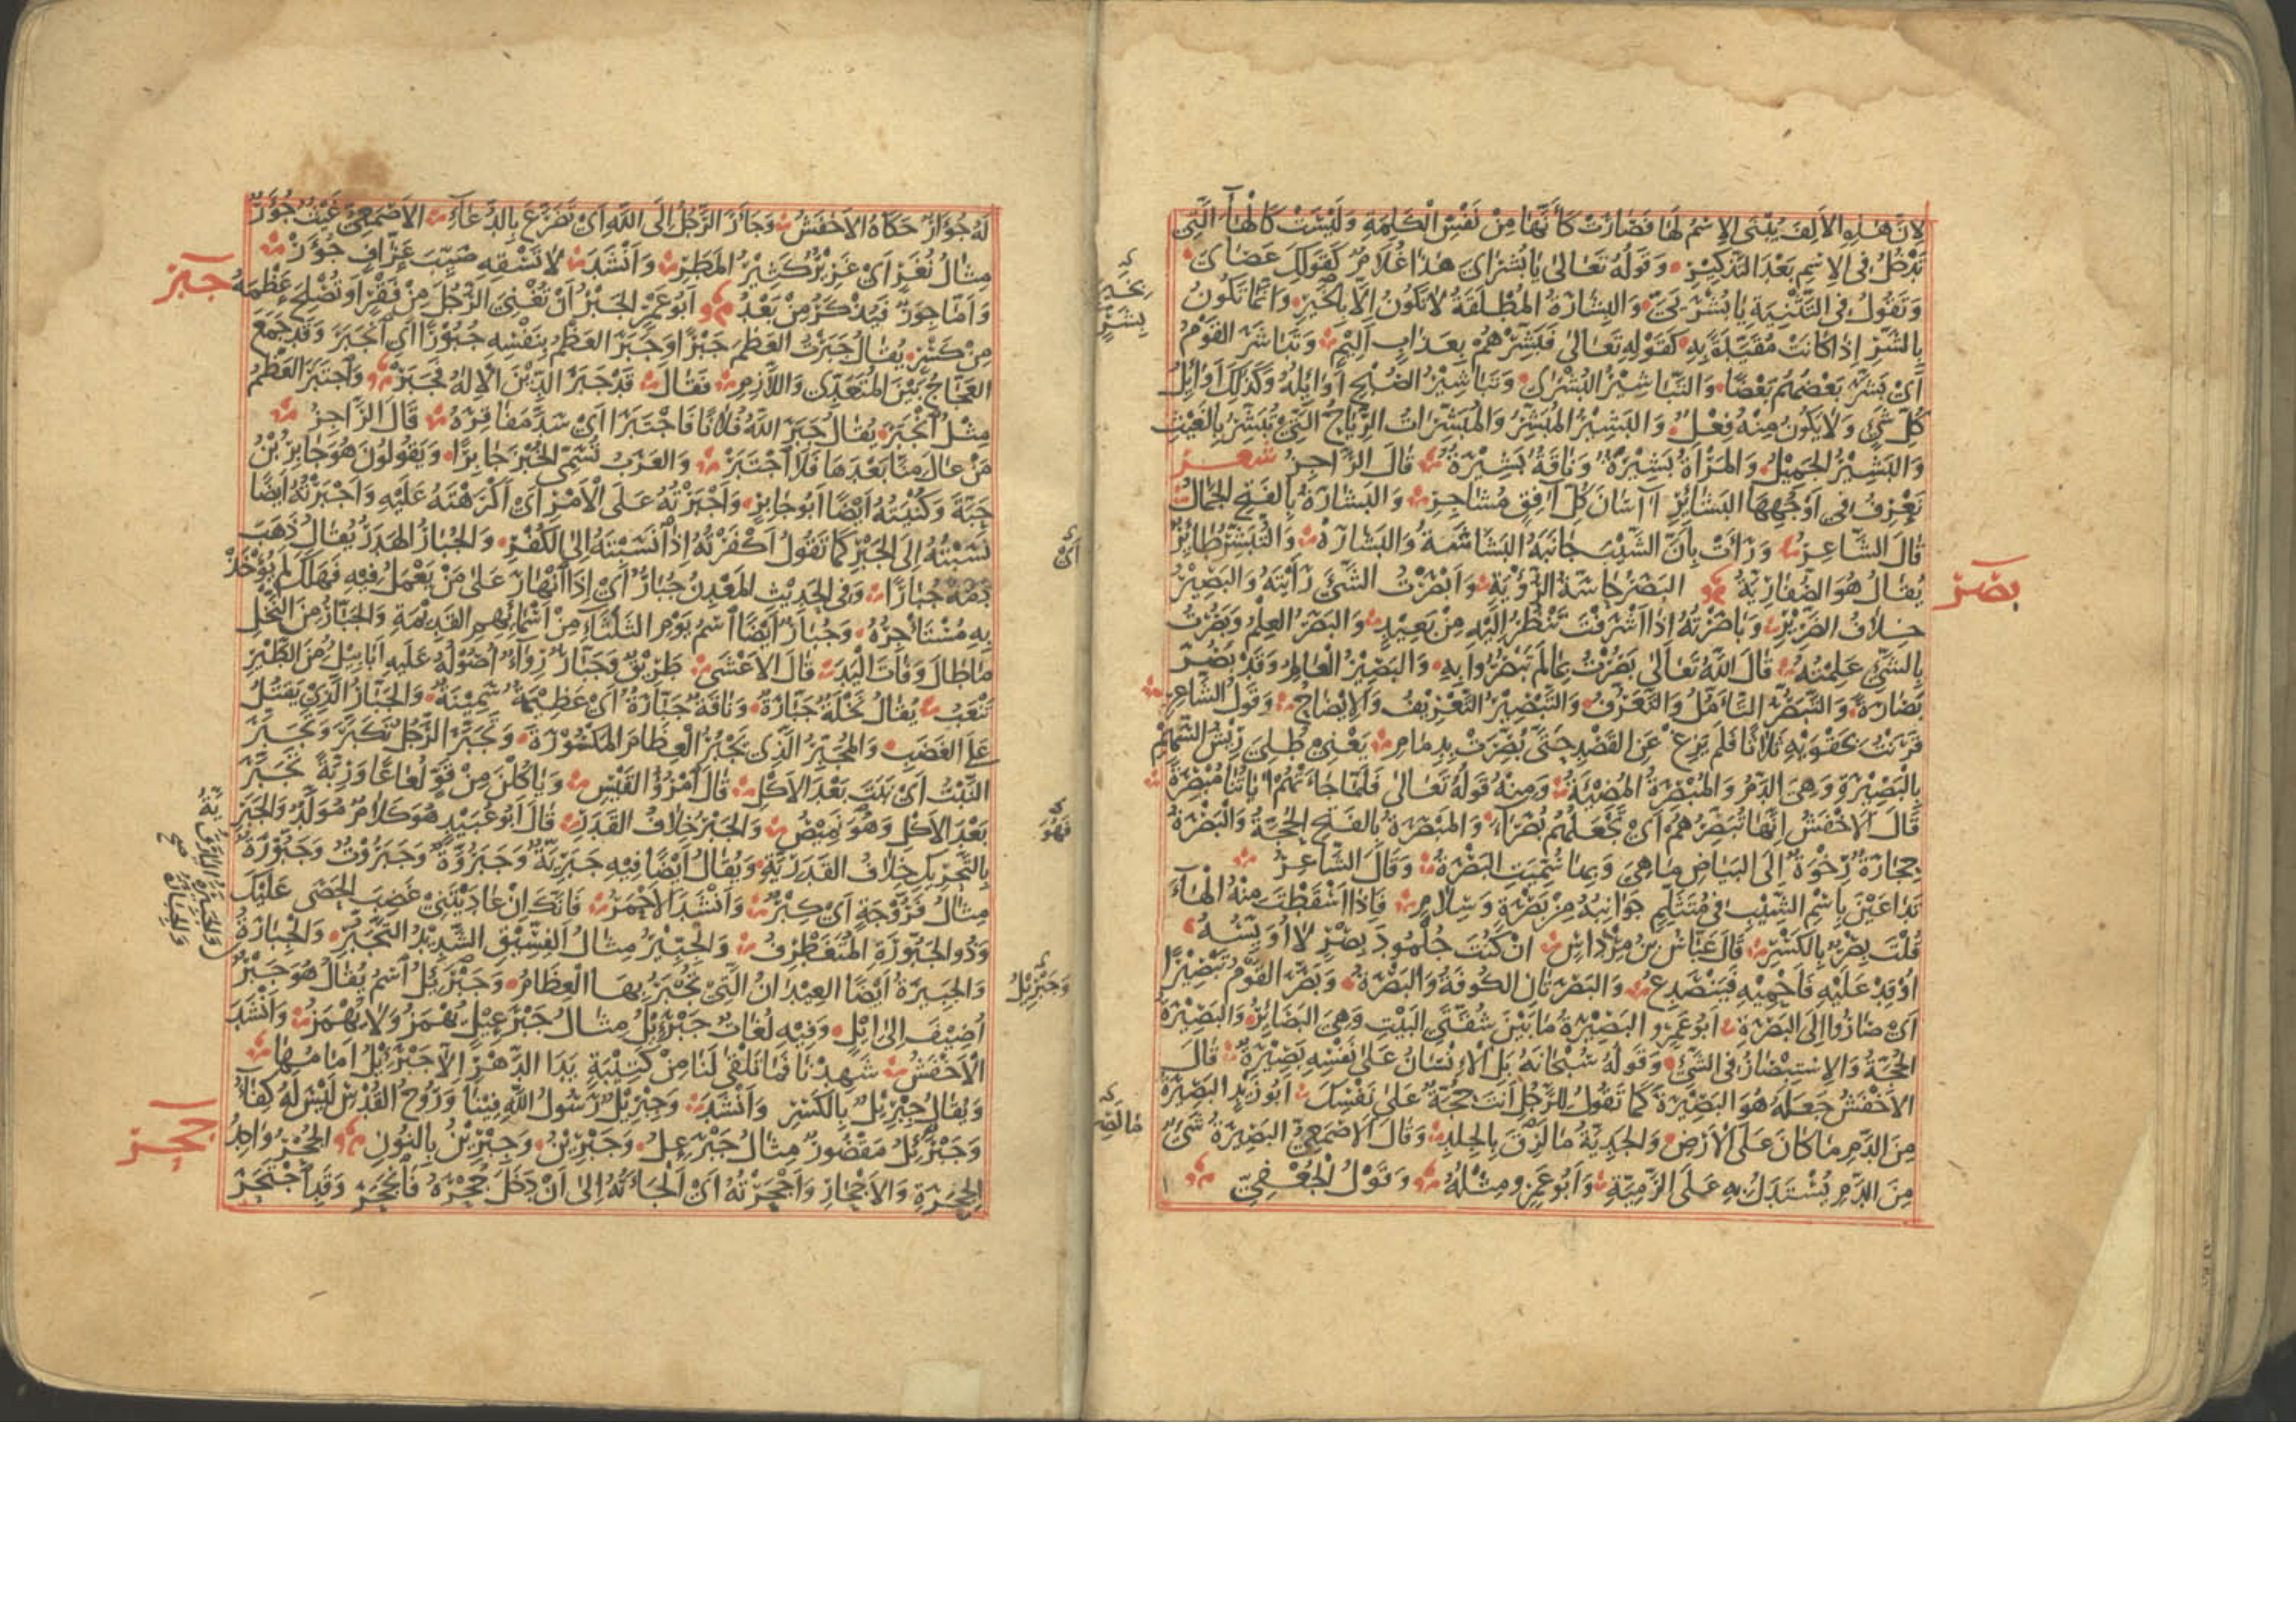 لِاَنَّ هٰذِهِ الْاَلِفَ يُبْنَى الْاِسْمُ لَهَا فَصَارَتْ كَأَنَّهَا مِنْ نَفْسِ الْكَلِمَةِ وَلَيْسَتْ كَالْهَاءِ الَّتِي
تَدْخُلُ فِي الْاِسْمِ بَعْدَ التَّذْكِيْرِ وَقَوْلُهُ تَعَالىٰ يَا بُشْرَايَ هٰذَا غُلَامٌ كَقَوْلِكَ عَصَايَ
وَتَقُوْلُ فِي التَّثْنِيَةِ يَا بُشْرَيَيَّ وَالْبِشَارَةُ الْمُطْلَقَةُ لَا تَكُوْنُ اِلَّا بِالْخَيْرِ وَاِنَّمَا تَكُوْنُ
بِالشَّرِّ اِذَا كَانَتْ مُقَيَّدَةً بِهِ كَقَوْلِهِ تَعَالىٰ فَبَشِّرْهُمْ بِعَذَابٍ اَلِيْمٍ وَتَبَاشَرَ الْقَوْمُ
اَيْ بَشَّرَ بَعْضُهُمْ بَعْضًا وَالتَّبَاشِيْرُ الْبُشْرٰى وَتَبَاشِيْرُ الصُّبْحِ اَوَائِلُهُ وَكَذٰلِكَ اَوَائِلُ
كُلِّ شَيْءٍ وَلَا يَكُوْنُ مِنْهُ فِعْلٌ وَالْبَشِيْرُ الْمُبَشِّرُ وَالْمُبَشِّرَاتُ الرِّيَاحُ الَّتِيْ تُبَشِّرُ بِالْغَيْثِ
وَالْبَشِيْرُ الْجَمِيْلُ وَالْمَرْأَةُ بَشِيْرَةٌ وَنَاقَةٌ بَشِيْرَةٌ قَالَ الرَّاجِزُ شعر
تَعْرِفُ فِي اَوْجُهِهَا الْبَشَائِرِ آسَانَ كُلِّ آفِقٍ مُشَاجِرِ وَالْبَشَارَةُ بِالْفَتْحِ الْجَمَالُ
قَالَ الشَّاعِرُ وَرَأَتْ بِاَنَّ الشَّيْبَ جَانَبَهُ الْبَشَاشَةُ وَالْبَشَارَهْ وَالتُّبُشِّرُ طَائِرٌ
يُقَالُ هُوَ الصُّفَارِيَّةُ الْبَصَرُ حَاسَّةُ الرُّؤْيَةِ وَاَبْصَرْتُ الشَّيْءَ رَأَيْتُهُ وَالْبَصِيْرُ
خِلَافُ الضَّرِيْرِ وَبَاصَرْتُهُ اِذَا اَشْرَفْتَ تَنْظُرُ اِلَيْهِ مِنْ بَعِيْدٍ وَالْبَصَرُ الْعِلْمُ وَبَصُرْتُ
بِالشَّيْءِ عَلِمْتُهُ قَالَ اللّٰهُ تَعَالىٰ بَصُرْتُ بِمَا لَمْ يَبْصُرُوا بِهِ وَالْبَصِيْرُ الْعَالِمُ وَقَدْ بَصُرَ
بَصَارَةً وَالتَّبَصُّرُ التَّأَمُّلُ وَالتَّعَرُّفُ وَالتَّبْصِيْرُ التَّعْرِيْفُ وَالْاِيْضَاحُ وَقَوْلُ الشَّاعِرِ
قَرَنْتُ بِحَقْوَيْهِ ثَلَاثًا فَلَمْ يَزِغْ عَنِ الْقَصْدِ حَتّىٰ بُصِّرَتْ بِدِمَامِ يَعْنِيْ طُلِيَ رِيْشُ السَّهْمِ
بِالْبَصِيْرَةِ وَهِيَ الدَّمُ وَالْمُبْصِرَةُ الْمُضِيْئَةُ وَمِنْهُ قَوْلُهُ تَعَالىٰ فَلَمَّا جَاءَتْهُمْ اٰيَاتُنَا مُبْصِرَةً
قَالَ الْاَخْفَشُ اِنَّهَا تُبَصِّرُهُمْ اَيْ تَجْعَلُهُمْ بُصَرَاءَ وَالْمَبْصَرَةُ بِالْفَتْحِ الْحُجَّةُ وَالْبَصْرَةُ
حِجَارَةٌ رِخْوَةٌ اِلَى الْبَيَاضِ مَا هِيَ وَبِهَا سُمِّيَتِ الْبَصْرَةُ وَقَالَ الشَّاعِرُ
تَدَاعَيْنَ بِاسْمِ الشِّيْبِ فِي مُتَثَلِّمٍ جَوَانِبُهُ مِنْ بَصْرَةٍ وَسِلَامِ فَاِذَا اَسْقَطْتَ مِنْهُ الْهَاءَ
قُلْتَ بِصْرٌ بِالْكَسْرِ قَالَ عَبَّاسُ بْنُ مِرْدَاسٍ اِنْ كُنْتَ جُلْمُودَ بِصْرٍ لَا اُوَبِّسُهُ
اُوْقِدْ عَلَيْهِ فَاَحْمِيْهِ فَيَنْصَدِعُ وَالْبَصْرَتَانِ الْكُوفَةُ وَالْبَصْرَةُ وَبَصَّرَ الْقَوْمُ تَبْصِيْرًا
اَيْ صَارُوْا اِلَى الْبَصْرَةِ اَبُوْ عَمْرٍو الْبَصِيْرَةُ مَا بَيْنَ شُقَّتَيِ الْبَيْتِ وَهِيَ الْبَصَائِرُ وَالْبَصِيْرَةُ
الْحُجَّةُ وَالْاِسْتِبْصَارُ فِي الشَّيْءِ وَقَوْلُهُ سُبْحَانَهُ بَلِ الْاِنْسَانُ عَلىٰ نَفْسِهِ بَصِيْرَةٌ قَالَ
الْاَخْفَشُ جَعَلَهُ هُوَ الْبَصِيْرَةَ كَمَا تَقُوْلُ لِلرَّجُلِ اَنْتَ حُجَّةٌ عَلىٰ نَفْسِكَ اَبُوْ زَيْدٍ الْبَصِيْرَةُ
مِنَ الدَّمِ مَا كَانَ عَلَى الْاَرْضِ وَالْجَدِيَّةُ مَا لَزِقَ بِالْجَسَدِ وَقَالَ الْاَصْمَعِيُّ الْبَصِيْرَةُ شَيْءٌ
مِنَ الدَّمِ يُسْتَدَلُّ بِهِ عَلَى الرَّمِيَّةِ وَاَبُوْ عَمْرٍو مِثْلُهُ وَقَوْلُ الْجُعْفِيِّ
بصر
لَهُ جُؤَارٌ حَكَاهُ الْاَخْفَشُ وَجَاَرَ الرَّجُلُ اِلَى اللّٰهِ اَيْ تَضَرَّعَ بِالدُّعَاءِ الْاَصْمَعِيُّ غَيْثٌ جُؤَرٌ
مِثَالُ نُغَرٍ اَيْ غَزِيْرٌ كَثِيْرُ الْمَطَرِ وَاَنْشَدَ لَا تَسْقِهِ صَيِّبَ عَزَّافٍ جُؤَرْ
وَاَمَّا جِوَرٌّ فَيُذْكَرُ مِنْ بَعْدُ اَبُوْ عَمْرٍو الْجَبْرُ اَنْ تُغْنِيَ الرَّجُلَ مِنْ فَقْرٍ اَوْ تُصْلِحَ عَظْمَهُ
مِنْ كَسْرٍ يُقَالُ جَبَرْتُ الْعَظْمَ جَبْرًا وَجَبَرَ الْعَظْمُ بِنَفْسِهِ جُبُوْرًا اَيِ انْجَبَرَ وَقَدْ جَمَعَ
الْعَجَّاجُ بَيْنَ الْمُتَعَدِّي وَاللَّازِمِ فَقَالَ قَدْ جَبَرَ الدِّيْنَ الْاِلٰهُ فَجَبَرْ وَاجْتَبَرَ الْعَظْمُ
مِثْلُ انْجَبَرَ يُقَالُ جَبَرَ اللّٰهُ فُلَانًا فَاجْتَبَرَ اَيْ سَدَّ مَفَاقِرَهُ قَالَ الرَّاجِزُ
مَنْ عَالَ مِنَّا بَعْدَهَا فَلَا اجْتَبَرْ وَالْعَرَبُ تُسَمِّي الْخُبْزَ جَابِرًا وَيَقُوْلُوْنَ هُوَ جَابِرُ بْنُ
حَبَّةَ وَكُنْيَتُهُ اَيْضًا اَبُوْ جَابِرٍ وَاَجْبَرْتُهُ عَلَى الْاَمْرِ اَيْ اَكْرَهْتُهُ عَلَيْهِ وَاَجْبَرْتُهُ اَيْضًا
نَسَبْتُهُ اِلَى الْجَبْرِ كَمَا تَقُوْلُ اَكْفَرْتُهُ اِذَا نَسَبْتَهُ اِلَى الْكُفْرِ وَالْجُبَارُ الْهَدَرُ يُقَالُ ذَهَبَ
دَمُهُ جُبَارًا وَفِي الْحَدِيْثِ الْمَعْدِنُ جُبَارٌ اَيْ اِذَا انْهَارَ عَلىٰ مَنْ يَعْمَلُ فِيْهِ فَهَلَكَ لَمْ يُؤْخَذْ
بِهِ مُسْتَأْجِرُهُ وَجُبَارٌ اَيْضًا اسْمُ يَوْمِ الثَّلَثَاءِ مِنْ اَسْمَائِهِمِ الْقَدِيْمَةِ وَالْجَبَّارُ مِنَ النَّخْلِ
مَا طَالَ وَفَاتَ الْيَدَ قَالَ الْاَعْشىٰ طَرِيْقٌ وَجَبَّارٌ رِوَاءٌ اُصُوْلُهُ عَلَيْهِ اَبَابِيْلُ مِنَ الطَّيْرِ
تَنْعَبُ يُقَالُ نَخْلَةٌ جَبَّارَةٌ وَنَاقَةٌ جَبَّارَةٌ اَيْ عَظِيْمَةٌ سَمِيْنَةٌ وَالْجَبَّارُ الَّذِيْ يَقْتُلُ
عَلَى الْغَضَبِ وَالْمُجَبِّرُ الَّذِيْ يُجْبِرُ الْعِظَامَ الْمَكْسُوْرَةَ وَتَجَبَّرَ الرَّجُلُ تَكَبَّرَ وَتَجَبَّرَ
النَّبْتُ اَيْ نَبَتَ بَعْدَ الْاَكْلِ قَالَ امْرُؤُ الْقَيْسِ وَيَاْكُلْنَ مِنْ قَوٍّ لُعَاعًا وَرِبَّةً تَجَبَّرَ
بَعْدَ الْاَكْلِ وَهُوَ نَمِيْصُ وَالْجَبْرُ خِلَافُ الْقَدَرِ قَالَ اَبُوْ عُبَيْدٍ هُوَ كَلَامٌ مُوَلَّدٌ وَالْجَبَرِيَّةُ
بِالتَّحْرِيْكِ خِلَافُ الْقَدَرِيَّةِ وَيُقَالُ اَيْضًا فِيْهِ جَبَرِيَّةٌ وَجَبَرُوَّةٌ وَجَبَرُوْتٌ وَجَبُّوْرَةٌ
مِثَالُ فَرُّوْجَةٍ اَيْ كِبْرٌ وَاَنْشَدَ الْاَحْمَرُ فَاِنَّكَ اِنْ عَادَيْتَنِيْ غَضِبَ الْحَصٰى عَلَيْكَ
وَذُو الْجَبُّوْرَةِ الْمُتَغَطْرِفُ وَالْجِبِّيْرُ مِثَالُ الْفِسِّيْقِ الشَّدِيْدُ التَّجَبُّرِ وَالْجِبَارَةُ
وَالْجَبِيْرَةُ اَيْضًا الْعِيْدَانُ الَّتِيْ تُجْبَرُ بِهَا الْعِظَامُ وَجَبْرَئِلُ اسْمٌ يُقَالُ هُوَ جَبْرٌ
اُضِيْفَ اِلىٰ اِيْلٍ وَفِيْهِ لُغَاتٌ جَبْرَئِيْلُ مِثَالُ جَبْرَعِيْلٍ يُهْمَزُ وَلَا يُهْمَزُ وَاَنْشَدَ
الْاَخْفَشُ شَهِدْنَا فَمَا تَلْقٰى لَنَا مِنْ كَتِيْبَةٍ يَدَا الدَّهْرِ اِلَّا جَبْرَئِيْلُ اَمَامُهَا
وَيُقَالُ جِبْرِيْلُ بِالْكَسْرِ وَاَنْشَدَ وَجِبْرِيْلٌ رَسُوْلُ اللّٰهِ فِيْنَا وَرُوْحُ الْقُدْسِ لَيْسَ لَهُ كِفَاءُ
وَجَبْرَئِلُ مَقْصُوْرٌ مِثَالُ جَبْرَعِلٍ وَجَبْرِيْنُ وَجِبْرِيْنُ بِالنُّوْنِ الْجُحْرُ وَاحِدُ
الْجِحَرَةِ وَالْاَجْحَارِ وَاَجْحَرْتُهُ اَيْ اَلْجَأْتُهُ اِلىٰ اَنْ دَخَلَ جُحْرَهُ فَانْجَحَرَ وَقَدِ اجْتَحَرَ
جبر
اَيْ
فَهُوَ
وَجَبْرَئِيْلُ
جحر